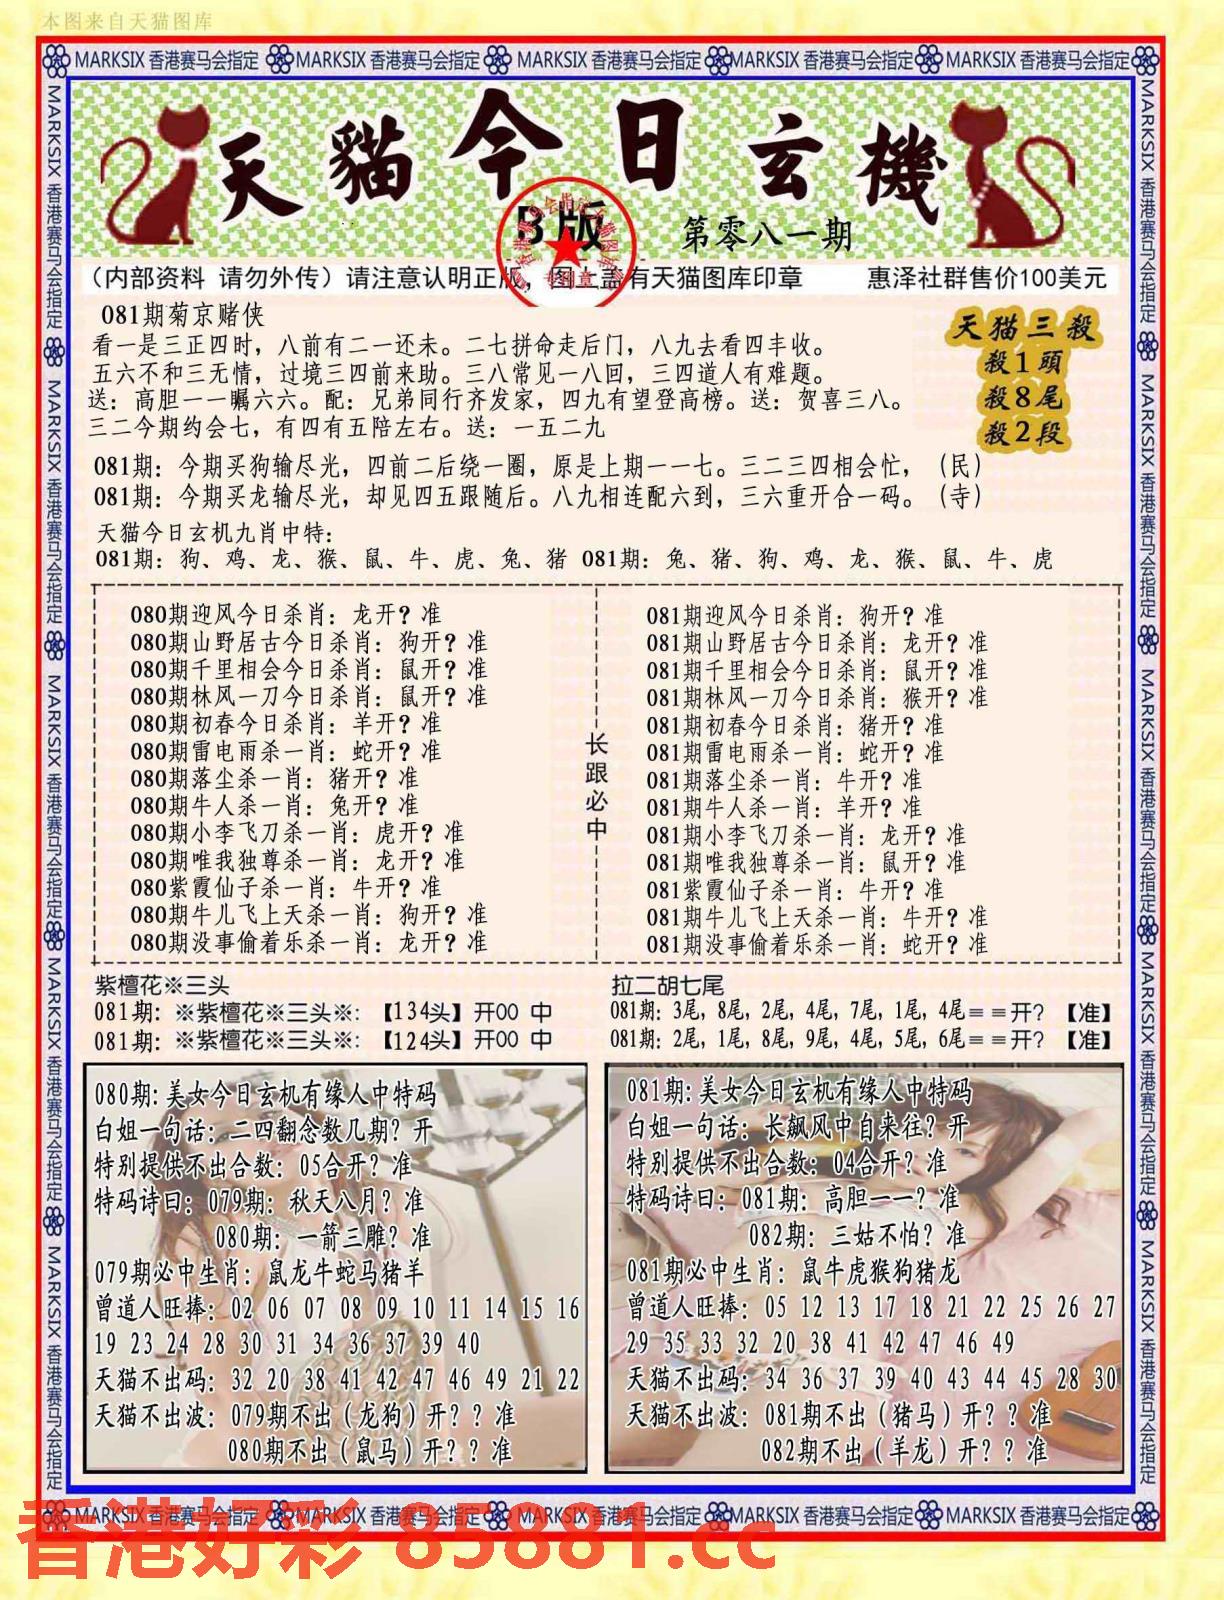 本图来自天猫图库
MARKSIX 香港赛马会指定 MARKSIX 香港赛马会指定 MARKSIX 香港赛马会指定 MARKSIX 香港赛马会指定 MARKSIX 香港赛马会指定
天貓今日玄機
B版
第零八一期
（内部资料 请勿外传）请注意认明正版，图上盖有天猫图库印章 惠泽社群售价100美元
081期菊京赌侠
看一是三正四时，八前有二一还未。二七拼命走后门，八九去看四丰收。
五六不和三无情，过境三四前来助。三八常见一八回，三四道人有难题。
送：高胆一一瞩六六。配：兄弟同行齐发家，四九有望登高榜。送：贺喜三八。
三二今期约会七，有四有五陪左右。送：一五二九
天猫三殺
殺1頭
殺8尾
殺2段
081期：今期买狗输尽光，四前二后绕一圈，原是上期一一七。三二三四相会忙，（民）
081期：今期买龙输尽光，却见四五跟随后。八九相连配六到，三六重开合一码。（寺）
天猫今日玄机九肖中特：
081期：狗、鸡、龙、猴、鼠、牛、虎、兔、猪 081期：兔、猪、狗、鸡、龙、猴、鼠、牛、虎
080期迎风今日杀肖：龙开？准
080期山野居古今日杀肖：狗开？准
080期千里相会今日杀肖：鼠开？准
080期林风一刀今日杀肖：鼠开？准
080期初春今日杀肖：羊开？准
080期雷电雨杀一肖：蛇开？准
080期落尘杀一肖：猪开？准
080期牛人杀一肖：兔开？准
080期小李飞刀杀一肖：虎开？准
080期唯我独尊杀一肖：龙开？准
080紫霞仙子杀一肖：牛开？准
080期牛儿飞上天杀一肖：狗开？准
080期没事偷着乐杀一肖：龙开？准
长跟必中
081期迎风今日杀肖：狗开？准
081期山野居古今日杀肖：龙开？准
081期千里相会今日杀肖：鼠开？准
081期林风一刀今日杀肖：猴开？准
081期初春今日杀肖：猪开？准
081期雷电雨杀一肖：蛇开？准
081期落尘杀一肖：牛开？准
081期牛人杀一肖：羊开？准
081期小李飞刀杀一肖：龙开？准
081期唯我独尊杀一肖：鼠开？准
081紫霞仙子杀一肖：牛开？准
081期牛儿飞上天杀一肖：牛开？准
081期没事偷着乐杀一肖：蛇开？准
紫檀花※三头
081期：※紫檀花※三头※：【134头】开00 中
081期：※紫檀花※三头※：【124头】开00 中
拉二胡七尾
081期：3尾，8尾，2尾，4尾，7尾，1尾，4尾＝＝开？【准】
081期：2尾，1尾，8尾，9尾，4尾，5尾，6尾＝＝开？【准】
080期：美女今日玄机有缘人中特码
白姐一句话：二四翻念数几期？开
特别提供不出合数：05合开？准
特码诗曰：079期：秋天八月？准
080期：一箭三雕？准
079期必中生肖：鼠龙牛蛇马猪羊
曾道人旺捧：02 06 07 08 09 10 11 14 15 16
19 23 24 28 30 31 34 36 37 39 40
天猫不出码：32 20 38 41 42 47 46 49 21 22
天猫不出波：079期不出（龙狗）开？？准
080期不出（鼠马）开？？准
081期：美女今日玄机有缘人中特码
白姐一句话：长飙风中自来往？开
特别提供不出合数：04合开？准
特码诗曰：081期：高胆一一？准
082期：三姑不怕？准
081期必中生肖：鼠牛虎猴狗猪龙
曾道人旺捧：05 12 13 17 18 21 22 25 26 27
29 35 33 32 20 38 41 42 47 46 49
天猫不出码：34 36 37 39 40 43 44 45 28 30
天猫不出波：081期不出（猪马）开？？准
082期不出（羊龙）开？？准
MARKSIX 香港赛马会指定 MARKSIX 香港赛马会指定 MARKSIX 香港赛马会指定 MARKSIX 香港赛马会指定 MARKSIX 香港赛马会指定
香港好彩 85881.cc